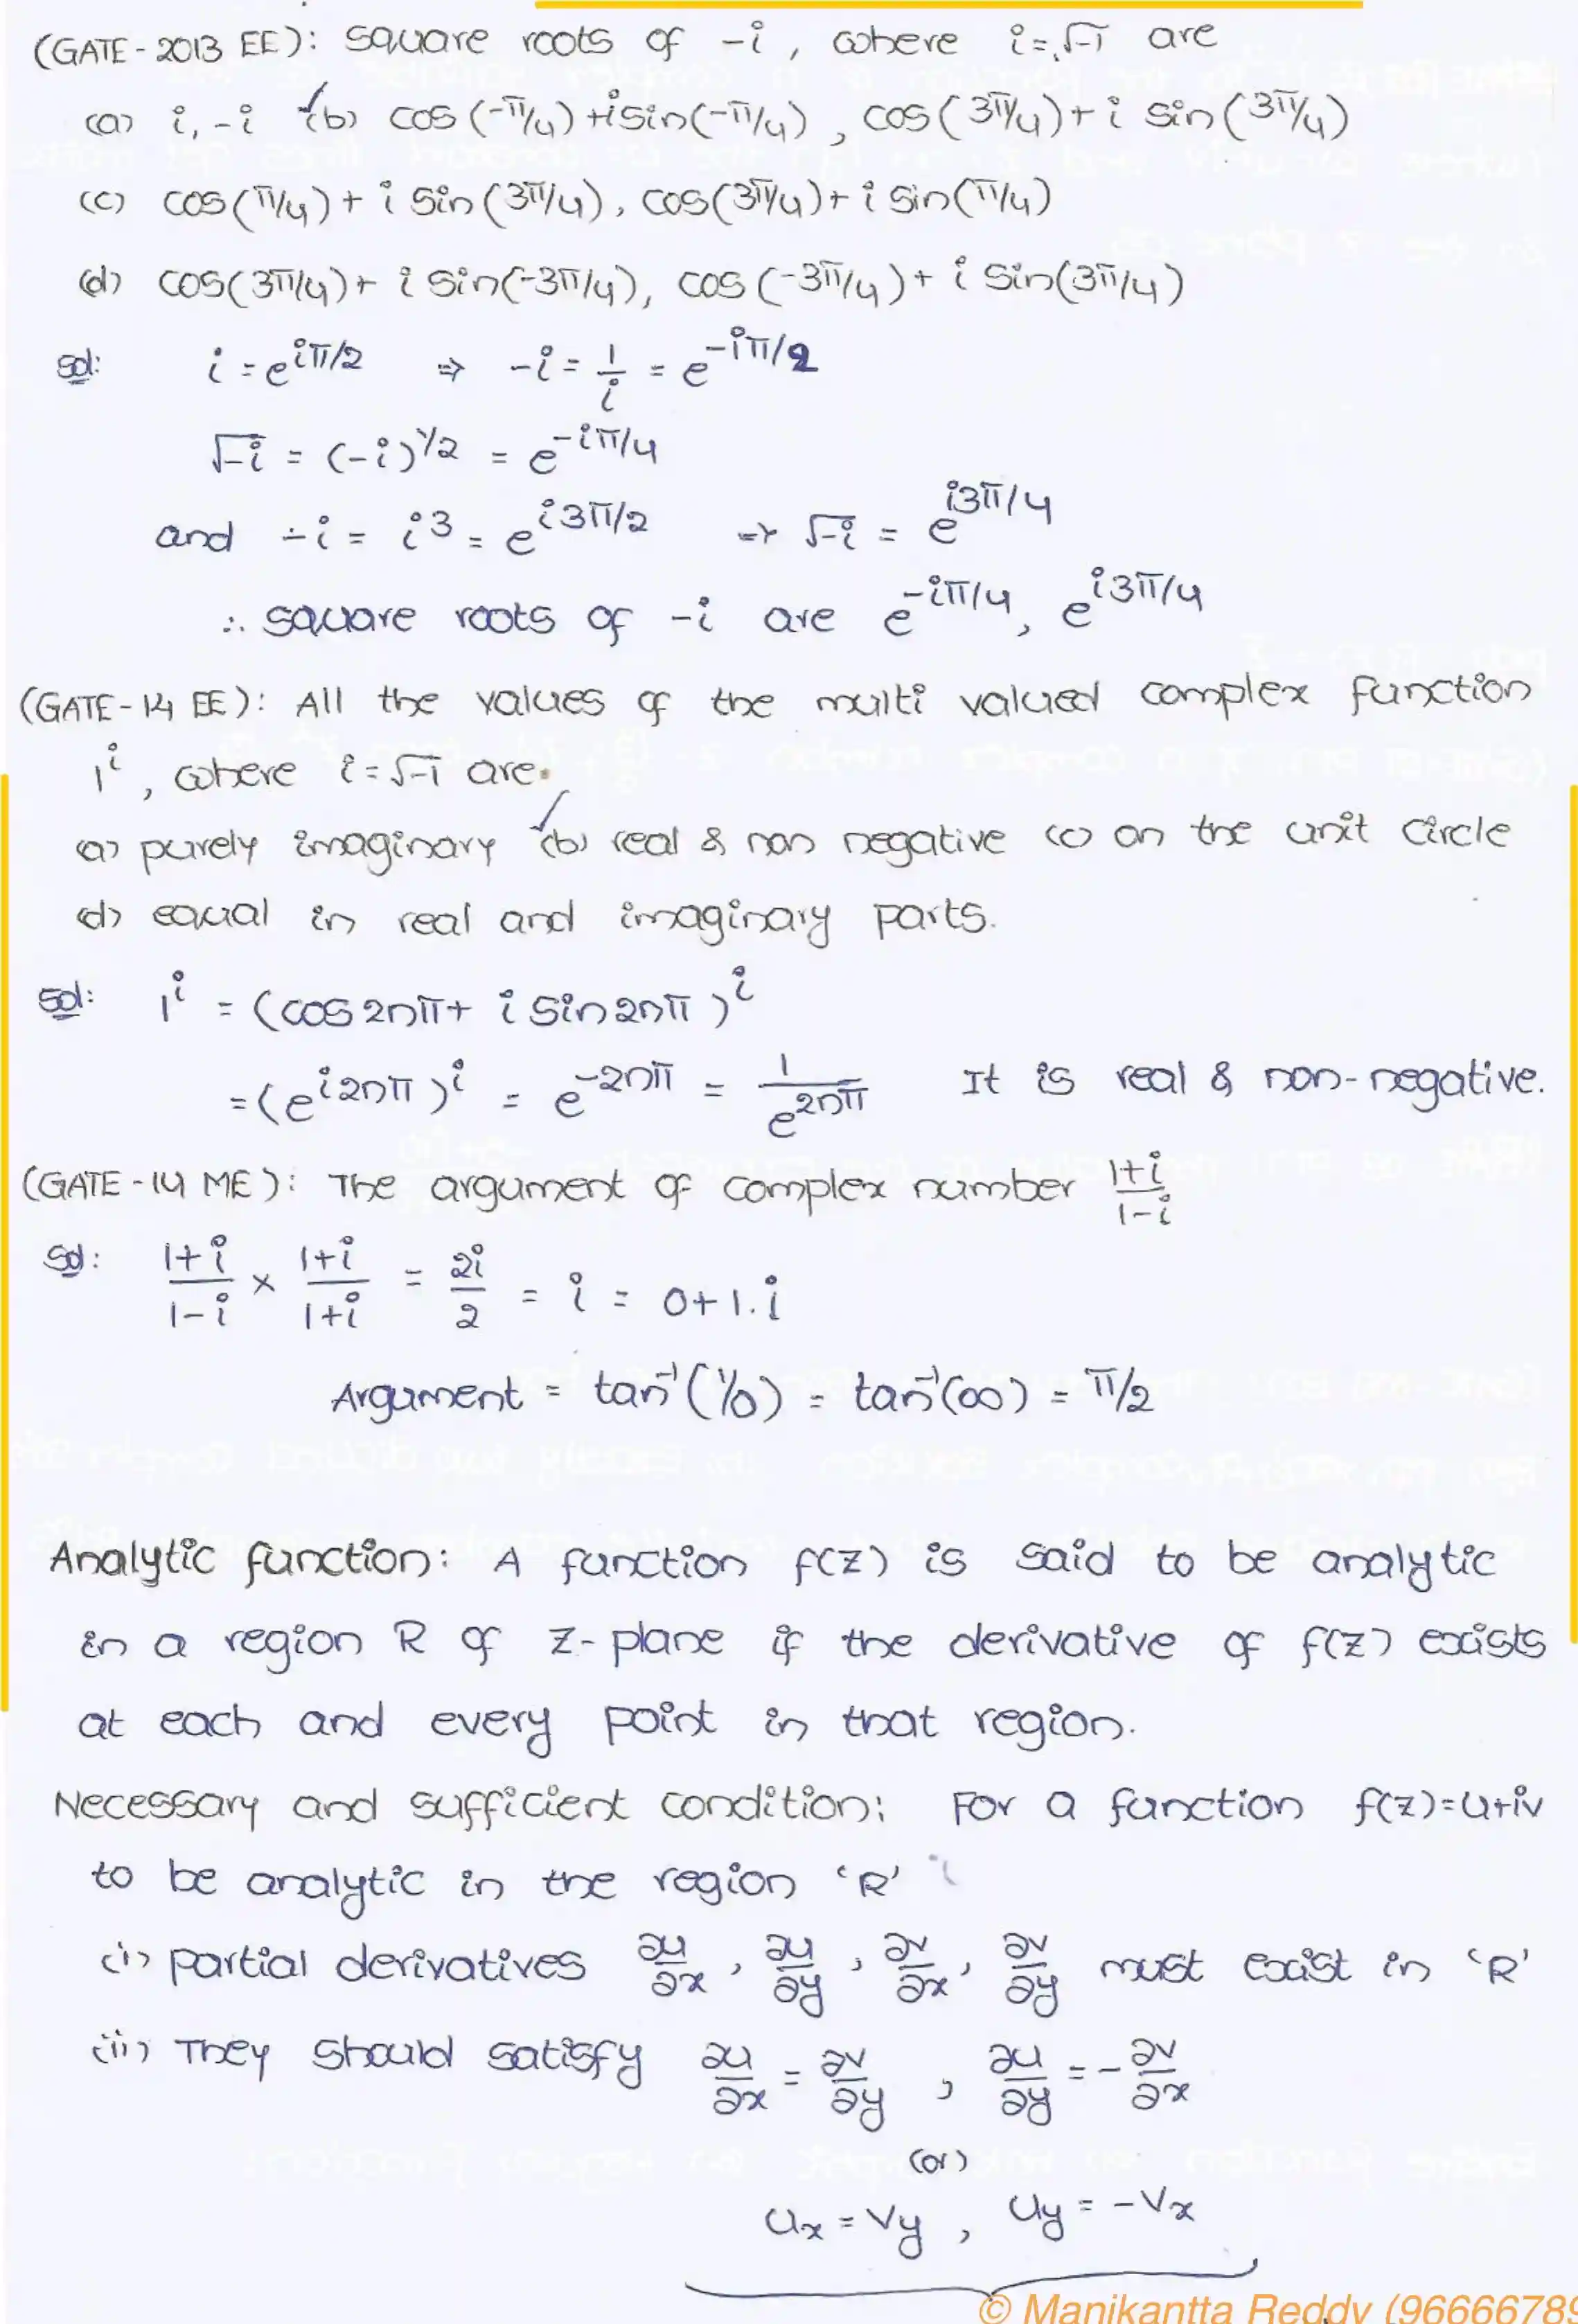 (GATE - 2013 EE): square roots of -i, where i = √-1 are
(a) i, -i (b) cos(-π/4) + i sin(-π/4), cos(3π/4) + i sin(3π/4)
(c) cos(π/4) + i sin(3π/4), cos(3π/4) + i sin(π/4)
(d) cos(3π/4) + i sin(-3π/4), cos(-3π/4) + i sin(3π/4)
Sol: i = e^{iπ/2} ⇒ -i = 1/i = e^{-iπ/2}
√-i = (-i)^{1/2} = e^{-iπ/4}
and -i = i^3 = e^{i3π/2} ⇒ √-i = e^{i3π/4}
∴ square roots of -i are e^{-iπ/4}, e^{i3π/4}
(GATE - 14 EE): All the values of the multi valued complex function
1^i, where i = √-1 are
a) purely imaginary (b) real & non negative (c) on the unit circle
d) equal in real and imaginary parts.
Sol: 1^i = (cos 2nπ + i sin 2nπ)^i
= (e^{i2nπ})^i = e^{-2nπ} = 1/e^{2nπ} It is real & non-negative.
(GATE - 14 ME): The argument of complex number (1+i)/(1-i)
Sol: (1+i)/(1-i) × (1+i)/(1+i) = 2i/2 = i = 0+1.i
Argument = tan^{-1}(1/0) = tan^{-1}(∞) = π/2
Analytic function: A function f(z) is said to be analytic
in a region R of z-plane if the derivative of f(z) exists
at each and every point in that region.
Necessary and sufficient condition: For a function f(z)=u+iv
to be analytic in the region 'R'
(i) partial derivatives ∂u/∂x, ∂u/∂y, ∂v/∂x, ∂v/∂y must exist in 'R'
(ii) They should satisfy ∂u/∂x = ∂v/∂y, ∂u/∂y = -∂v/∂x
(or)
u_x = v_y, u_y = -v_x
© Manikantta Reddy (96666789